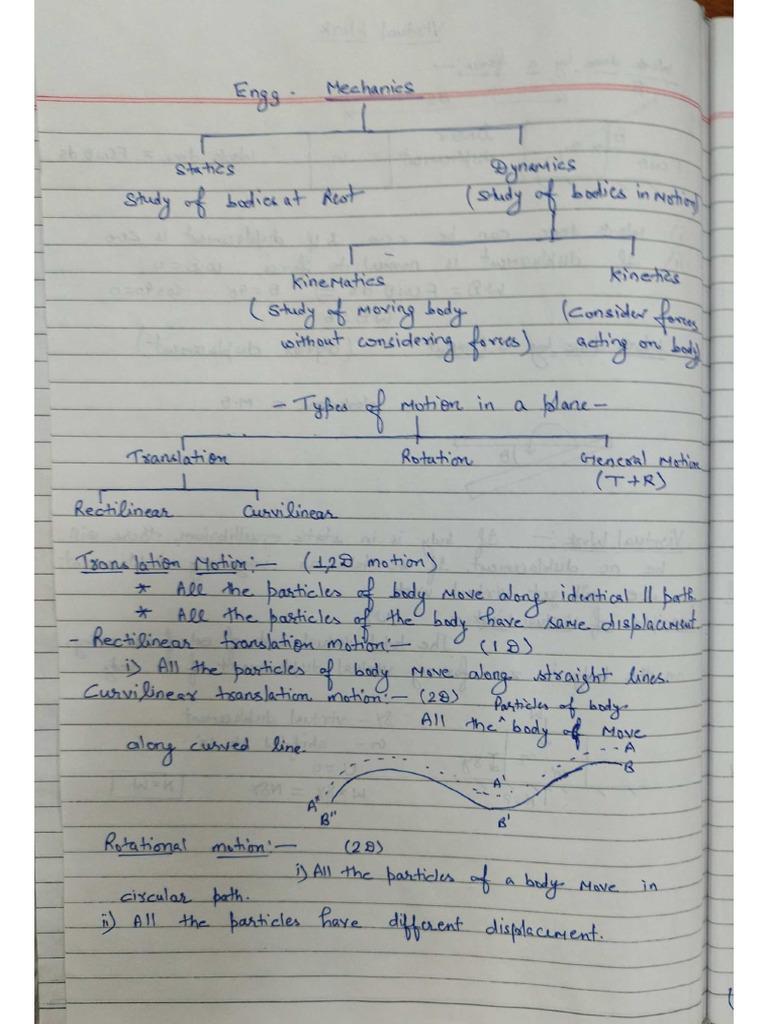 Engg. Mechanics
Statics Dynamics
Study of bodies at Rest (Study of bodies in Motion)
Kinematics Kinetics
(Study of Moving body (Consider forces
without considering forces) acting on body)
- Types of Motion in a plane -
Translation Rotation General Motion
(T+R)
Rectilinear Curvilinear
Translation Motion:- (1,2D motion)
* All the particles of body Move along identical || path
* All the particles of the body have same displacement.
- Rectilinear translation motion:- (1D)
i) All the particles of body Move along straight lines.
Curvilinear translation motion:- (2D) Particles of body
All the ^ body of Move
along curved line.
A
B
A'
A"
B"
B'
Rotational motion:- (2D)
i) All the particles of a body Move in
circular path.
ii) All the particles have different displacement.